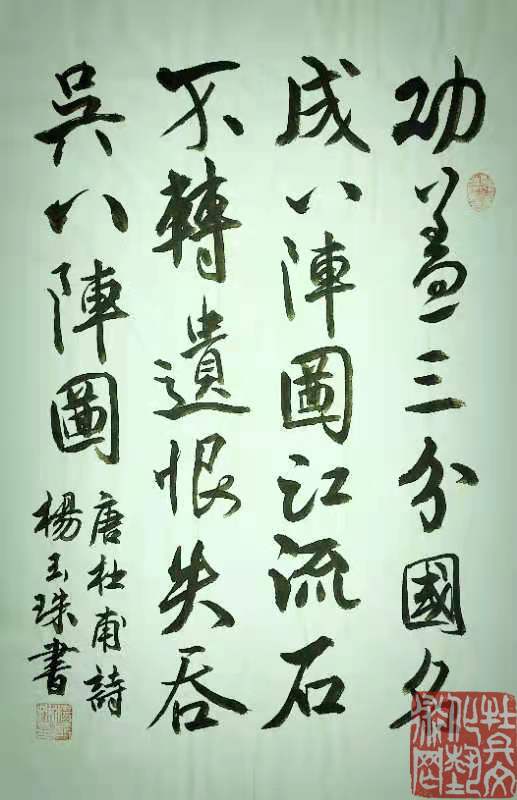 功蓋三分國名
成八陣圖江流石
不轉遺恨失吞
吳八陣圖
唐杜甫詩
楊玉珠書